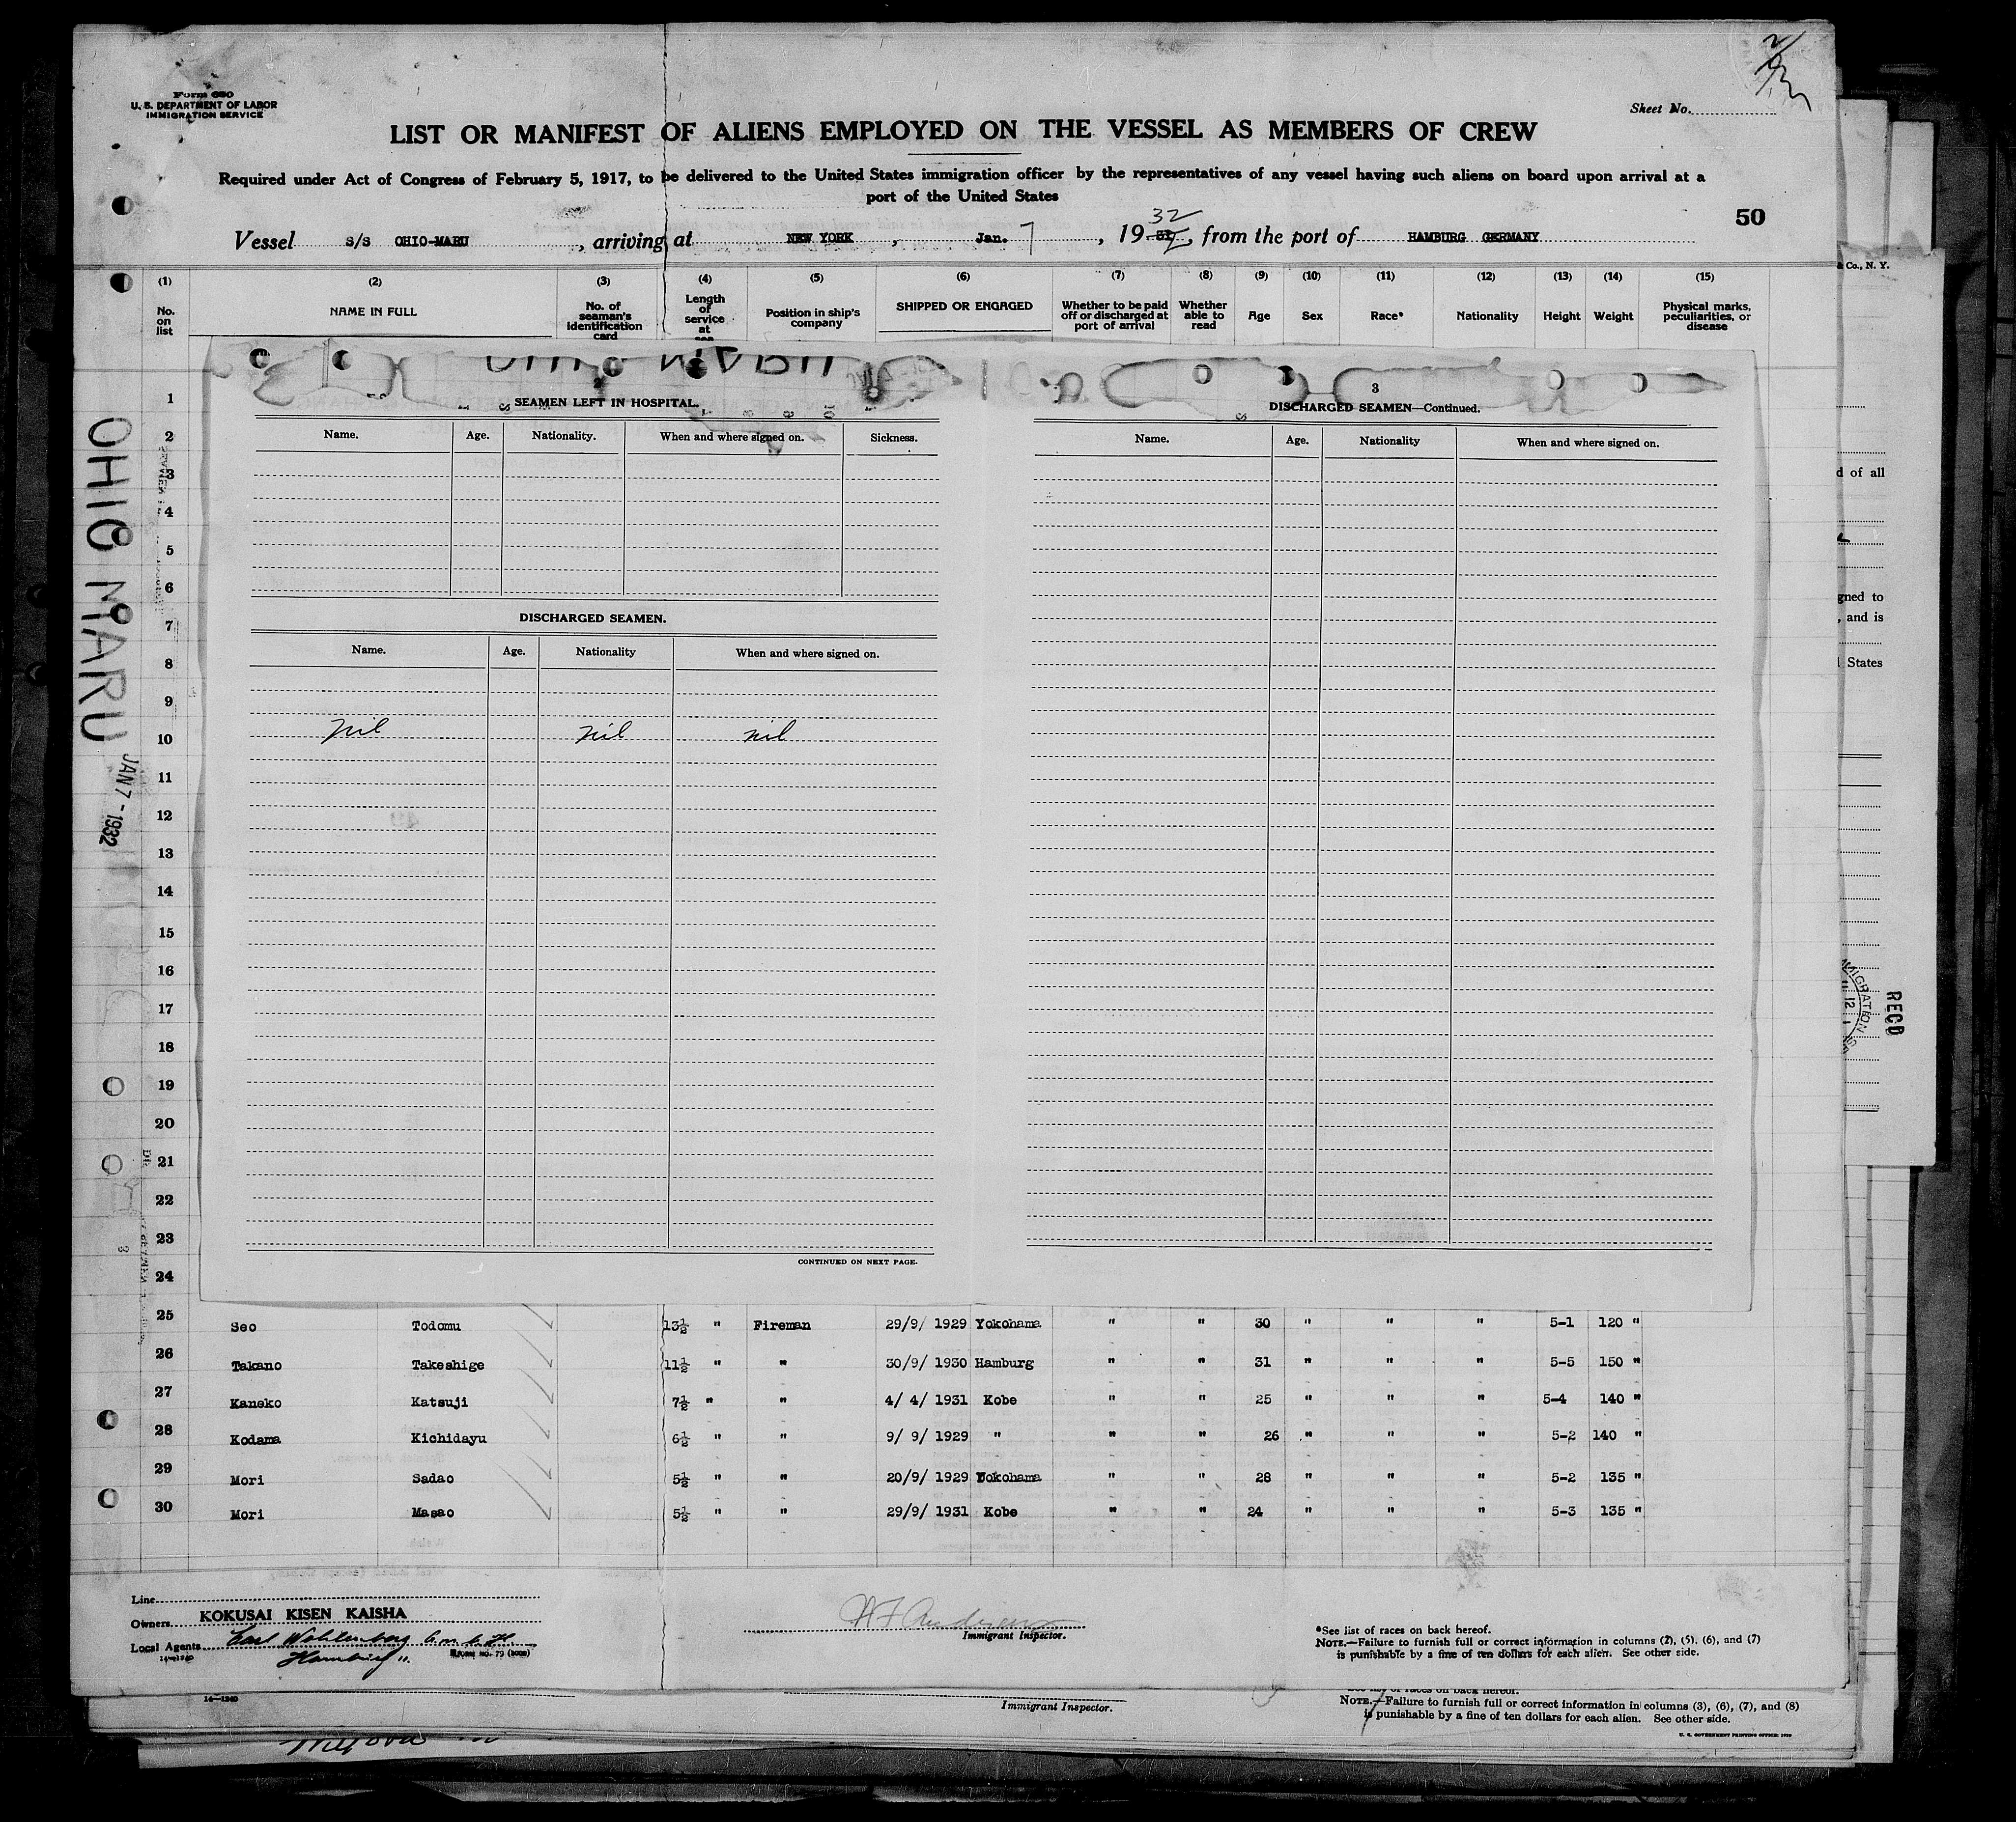 Form 680
U. S. DEPARTMENT OF LABOR
IMMIGRATION SERVICE
Sheet No.
LIST OR MANIFEST OF ALIENS EMPLOYED ON THE VESSEL AS MEMBERS OF CREW
Required under Act of Congress of February 5, 1917, to be delivered to the United States immigration officer by the representatives of any vessel having such aliens on board upon arrival at a
port of the United States
50
Vessel S/S OHIO-MARU, arriving at NEW YORK, Jan. 7, 19 32, from the port of HAMBURG GERMANY
& Co., N. Y.
(1) (2) (3) (4) (5) (6) (7) (8) (9) (10) (11) (12) (13) (14) (15)
No. on list
NAME IN FULL
No. of seaman's identification card
Length of service at sea
Position in ship's company
SHIPPED OR ENGAGED
Whether to be paid off or discharged at port of arrival
Whether able to read
Age
Sex
Race*
Nationality
Height
Weight
Physical marks, peculiarities, or disease
OHIO MARU
JAN 7 - 1932
1
2
3
4
5
6
7
8
9
10
11
12
13
14
15
16
17
18
19
20
21
22
23
24
SEAMEN LEFT IN HOSPITAL.
Name. Age. Nationality. When and where signed on. Sickness.
DISCHARGED SEAMEN.
Name. Age. Nationality When and where signed on.
nil nil nil
CONTINUED ON NEXT PAGE.
3
DISCHARGED SEAMEN—Continued.
Name. Age. Nationality When and where signed on.
d of all
gned to
, and is
States
RECD
25 Seo Todomu 13½ " Fireman 29/9/ 1929 Yokohama " " 30 " " " 5-1 120 "
26 Takano Takeshige 11½ " " 30/9/ 1930 Hamburg " " 31 " " " 5-5 150 "
27 Kaneko Katsuji 7½ " " 4/ 4/ 1931 Kobe " " 25 " " " 5-4 140 "
28 Kodama Kichidayu 6½ " " 9/ 9/ 1929 " " " 26 " " " 5-2 140 "
29 Mori Sadao 5½ " " 20/9/ 1929 Yokohama " " 28 " " " 5-2 135 "
30 Mori Masao 5½ " " 29/9/ 1931 Kobe " " 24 " " " 5-3 135 "
Line
Owners KOKUSAI KISEN KAISHA
Local Agents Carl Wohlenberg G.m.b.H.
Hamburg
14—1240
Immigrant Inspector.
*See list of races on back hereof.
NOTE.—Failure to furnish full or correct information in columns (2), (5), (6), and (7)
is punishable by a fine of ten dollars for each alien. See other side.
14—1240
Immigrant Inspector.
See list of races on back hereof.
NOTE.—Failure to furnish full or correct information in columns (3), (6), (7), and (8)
is punishable by a fine of ten dollars for each alien. See other side.
U. S. GOVERNMENT PRINTING OFFICE: